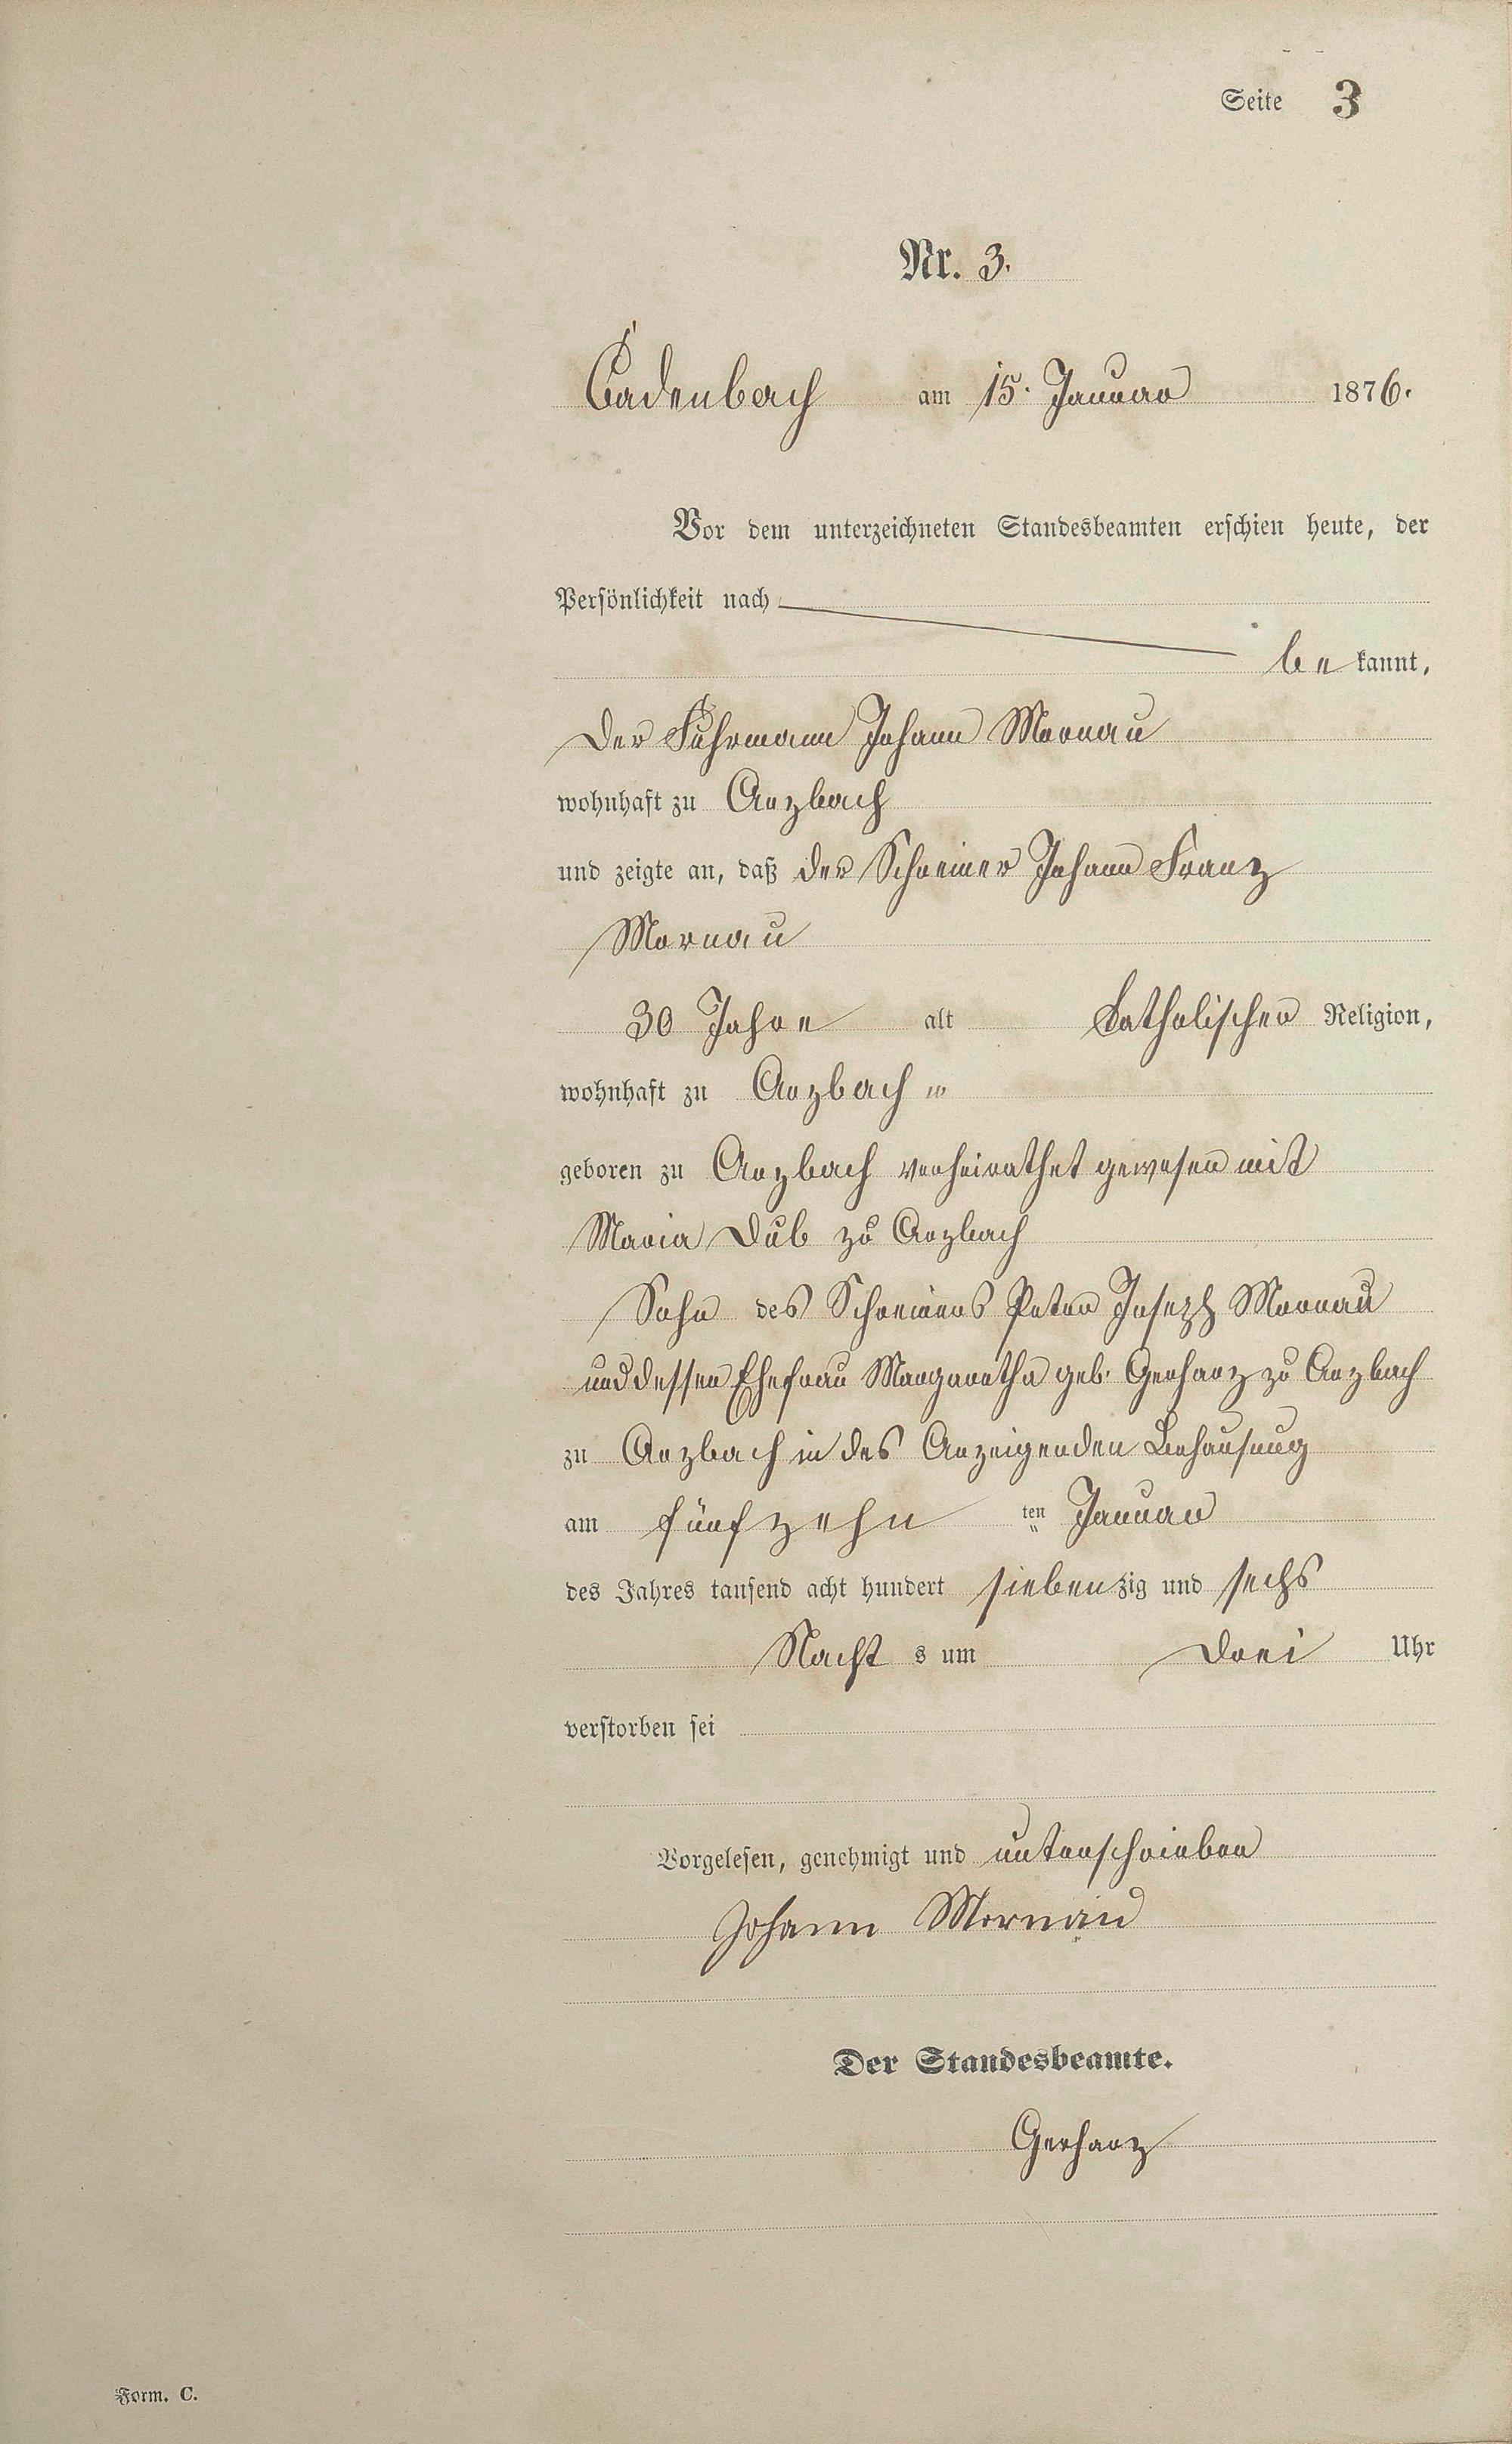 Seite 3
Nr. 3.
Cadenbach am 15. Januar 1876.
Vor dem unterzeichneten Standesbeamten erschien heute, der
Persönlichkeit nach
be kannt,
der Fuhrmann Johann Mornau
wohnhaft zu Arzbach
und zeigte an, daß der Schreiner Johann Franz
Mornau
30 Jahre alt katholischer Religion,
wohnhaft zu Arzbach
geboren zu Arzbach verheirathet gewesen mit
Maria Dub zu Arzbach
Sohn des Schreiners Peter Joseph Mornau
und dessen Ehefrau Margaretha geb. Gerharz zu Arzbach
zu Arzbach in des Anzeigenden Behausung
am fünfzehn ten Januar
des Jahres tausend acht hundert siebenzig und sechs
Nacht s um drei Uhr
verstorben sei
Vorgelesen, genehmigt und unterschrieben
Johann Mornau
Der Standesbeamte.
Gerharz
Form. C.